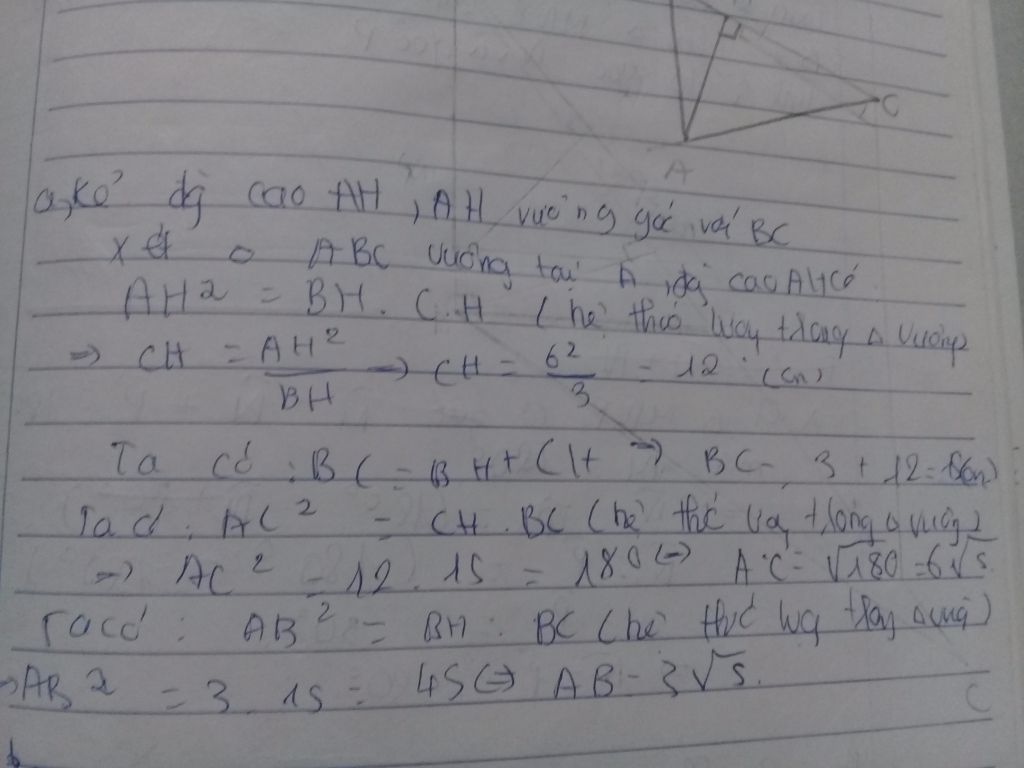 C
A
a, Kẻ đg cao AH, AH vuông góc với BC
Xét △ ABC vuông tại A, đg cao AH có
AH2 = BH. C.H (hệ thức lượng trong △ vuông)
=> CH = AH² / BH → CH = 6² / 3 = 12 (cm)
Ta có : BC = BH + CH → BC = 3 + 12 = 15(cm)
Ta có : AC² = CH . BC (hệ thức lượng trong △ vuông)
=> AC² = 12 . 15 = 180 <=> AC = √180 = 6√5.
Ta có : AB² = BH . BC (hệ thức lượng trong △ vuông)
=> AB2 = 3 . 15 = 45 <=> AB = 3√5.
C
b